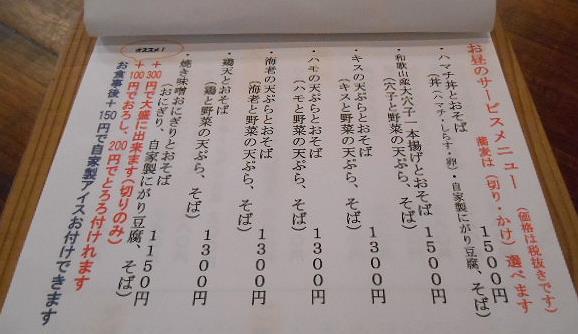 お昼のサービスメニュー (価格は税抜きです)
蕎麦は(切り・かけ)選べます
・ハマチ丼とおそば 1500円
(丼(ハマチ・しらす・卵)・自家製にがり豆腐、そば)
・和歌山産大穴子一本揚げとおそば 1500円
(穴子と野菜の天ぷら、そば)
・キスの天ぷらとおそば 1300円
(キスと野菜の天ぷら、そば)
・ハモの天ぷらとおそば 1300円
(ハモと野菜の天ぷら、そば)
・海老の天ぷらとおそば 1300円
(海老と野菜の天ぷら、そば)
・鶏天とおそば 1300円
(鶏と野菜の天ぷら、そば)
・焼き味噌おにぎりとおそば 1150円
(おにぎり、自家製にがり豆腐、そば)
オススメ!
+300円で大盛に出来ます(切りのみ)
+100円でおろし、200円でとろろ付けれます
お食事後+150円で自家製アイスお付けできます